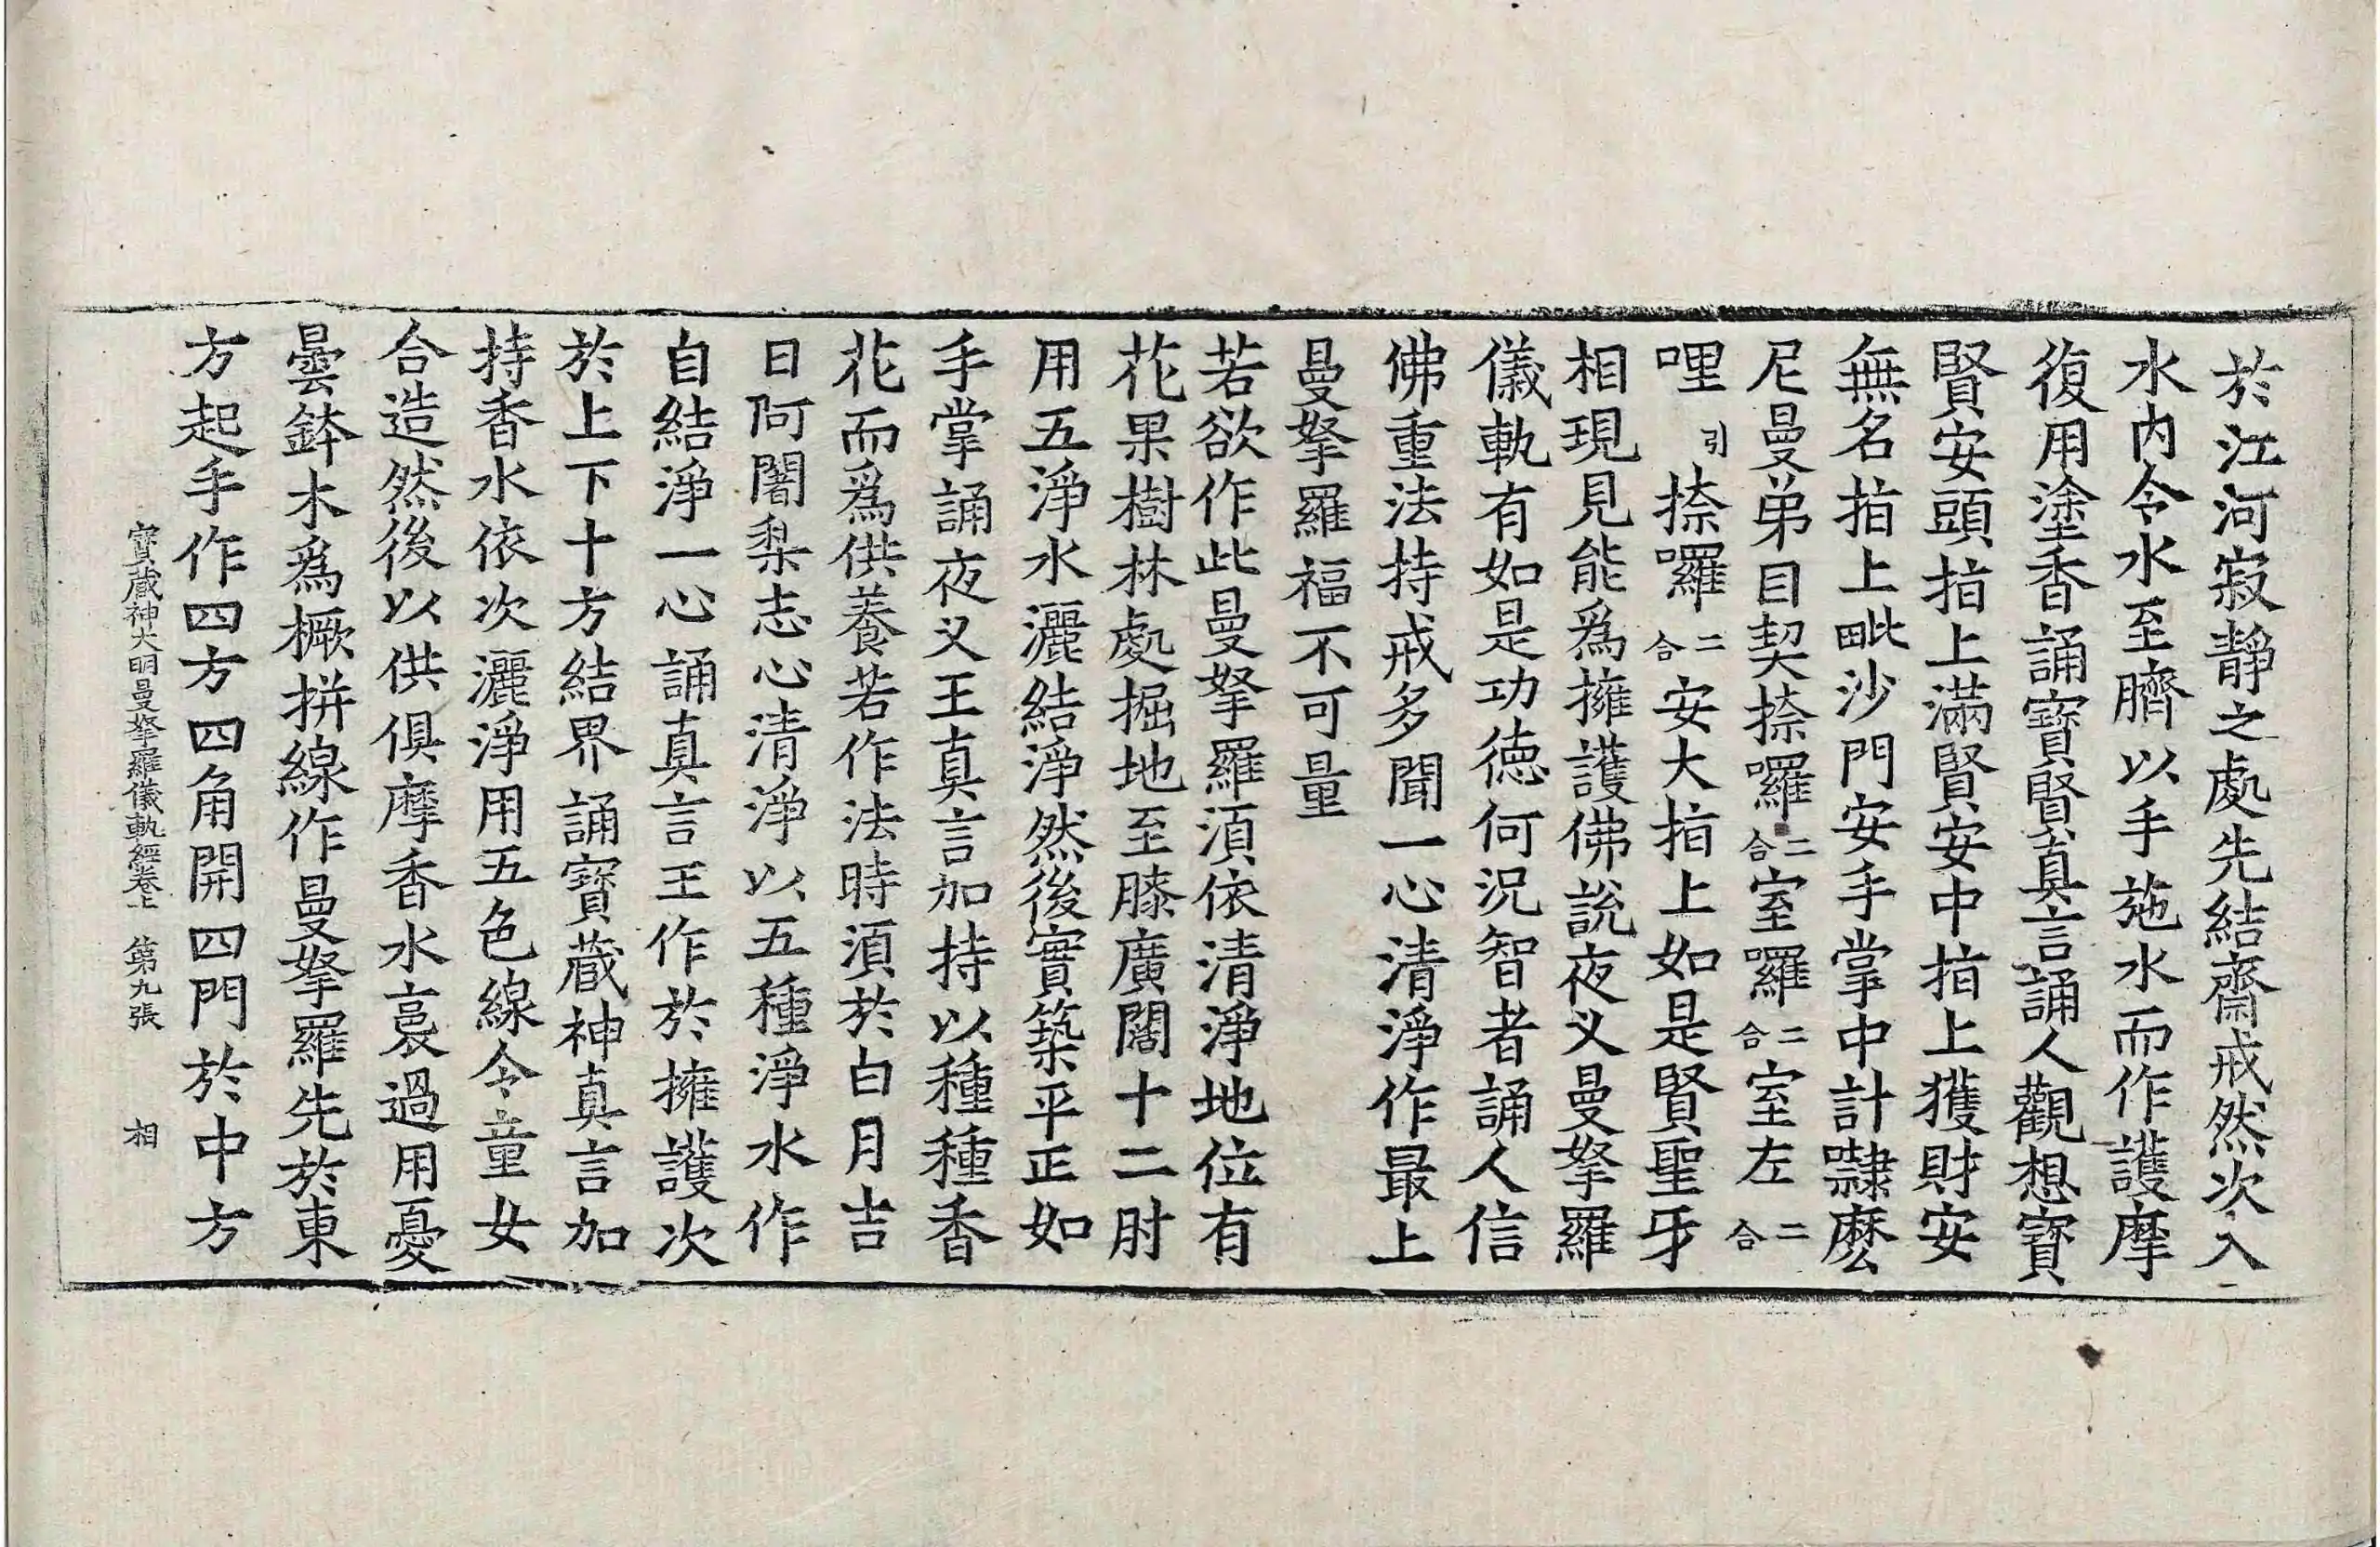 於江河寂靜之處先結齋戒然次入
水内令水至臍以手施水而作護摩
復用塗香誦寶賢真言誦人觀想寶
賢安頭指上滿賢安中指上獲財安
無名指上毗沙門安手掌中計㘑麽
尼曼弟目契捺囉二合室囉二合室左二合
哩引捺囉二合安大指上如是賢聖牙
相現見能爲擁護佛說夜叉曼拏羅
儀軌有如是功德何況智者誦人信
佛重法持戒多聞一心清淨作最上
曼拏羅福不可量
若欲作此曼拏羅須依清淨地位有
花果樹林處掘地至膝廣闊十二肘
用五淨水灑結淨然後實築平正如
手掌誦夜叉王真言加持以種種香
花而爲供養若作法時須於白月吉
日阿闍梨志心清淨以五種淨水作
自結淨一心誦真言王作於擁護次
於上下十方結界誦寶藏神真言加
持香水依次灑淨用五色線令童女
合造然後以供俱摩香水裛過用憂
曇鉢木爲橛拼線作曼拏羅先於東
方起手作四方四角開四門於中方
寶藏神大明曼拏羅儀軌經卷上 第九張 相